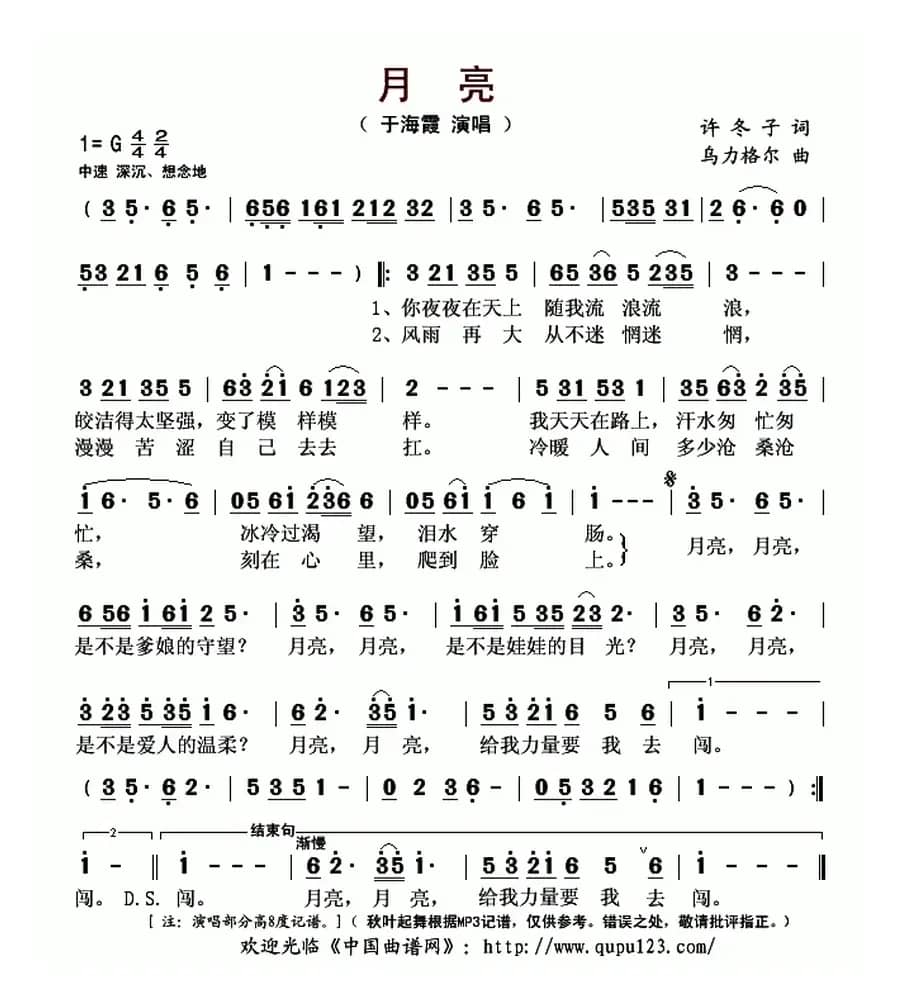 月 亮
（ 于海霞 演唱 ）
1= G 4/4 2/4
许 冬 子 词
乌力格尔 曲
中速 深沉、想念地
( 3 5· 6 5· | 656 161 212 32 | 3 5· 6 5· | 535 31 | 2 6· 6 0 |
53 21 6 5 6 | 1 - - - ) ‖: 3 21 35 5 | 65 36 5 235 | 3 - - - |
1、你夜夜在天上 随我流 浪流 浪，
2、风雨 再 大 从不迷 惘迷 惘，
3 21 35 5 | 63 21 6 123 | 2 - - - | 5 31 53 1 | 35 63 2 35 |
皎洁得太坚强，变了模 样模 样。 我天天在路上，汗水匆 忙匆
漫漫 苦 涩 自 己 去去 扛。 冷暖 人 间 多少沧 桑沧
1 6· 5· 6 | 05 61 236 6 | 05 61 1 6 1 | 1 - - - | 3 5· 6 5· |
忙， 冰冷过渴 望， 泪水 穿 肠。 月亮，月亮，
桑， 刻在 心 里，爬到 脸 上。
6 56 1 61 2 5· | 3 5· 6 5· | 1 61 5 35 23 2· | 3 5· 6 2· |
是不是爹娘的守望？ 月亮，月亮， 是不是娃娃的目 光？ 月亮，月亮，
1
3 23 5 35 1 6· | 6 2· 35 1· | 5 3 21 6 5 6 | 1 - - - |
是不是爱人的温柔？ 月亮，月 亮， 给我力量要 我 去 闯。
( 3 5· 6 2· | 5 3 5 1 - | 0 2 3 6 - | 0 5 3 2 1 6 | 1 - - - ) :‖
2 结束句
渐慢
1 - ‖ 1 - - - | 6 2· 35 1· | 5 3 21 6 5 6 | 1 - - - ‖
闯。 D.S. 闯。 月亮，月 亮， 给我力量要 我 去 闯。
[ 注：演唱部分高8度记谱。]（ 秋叶起舞根据MP3记谱，仅供参考。错误之处，敬请批评指正。）
欢迎光临《中国曲谱网》：http://www.qupu123.com/